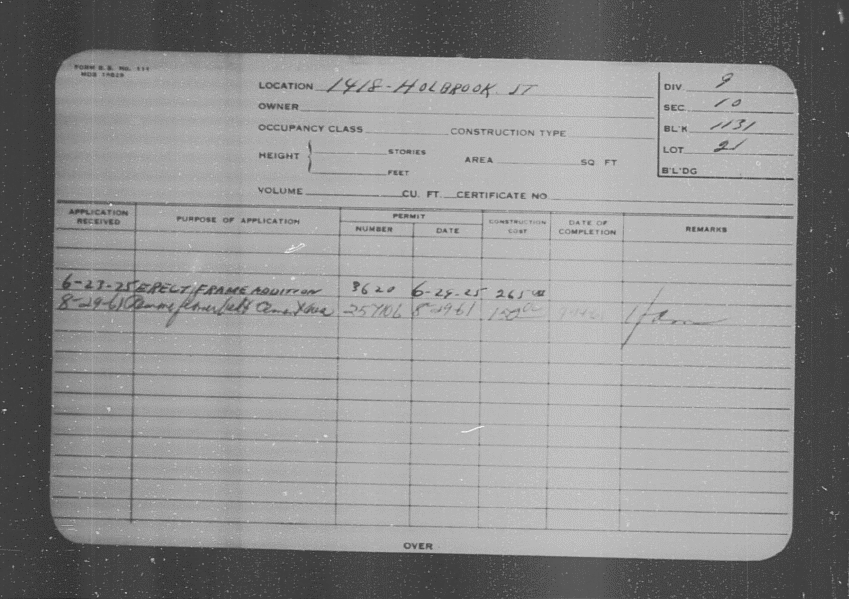 FORM B. B. No. 111
LOCATION 1418-HOLBROOK ST
DIV. 9
OWNER
SEC. 10
OCCUPANCY CLASS CONSTRUCTION TYPE
BL'K 1131
HEIGHT STORIES FEET AREA SQ. FT
LOT 21
B'L'DG
VOLUME CU. FT. CERTIFICATE NO.
APPLICATION RECEIVED PURPOSE OF APPLICATION PERMIT NUMBER DATE CONSTRUCTION COST DATE OF COMPLETION REMARKS
6-23-25 ERECT FRAME ADDITION 3620 6-24-25 265
8-29-61 8-29-61
OVER